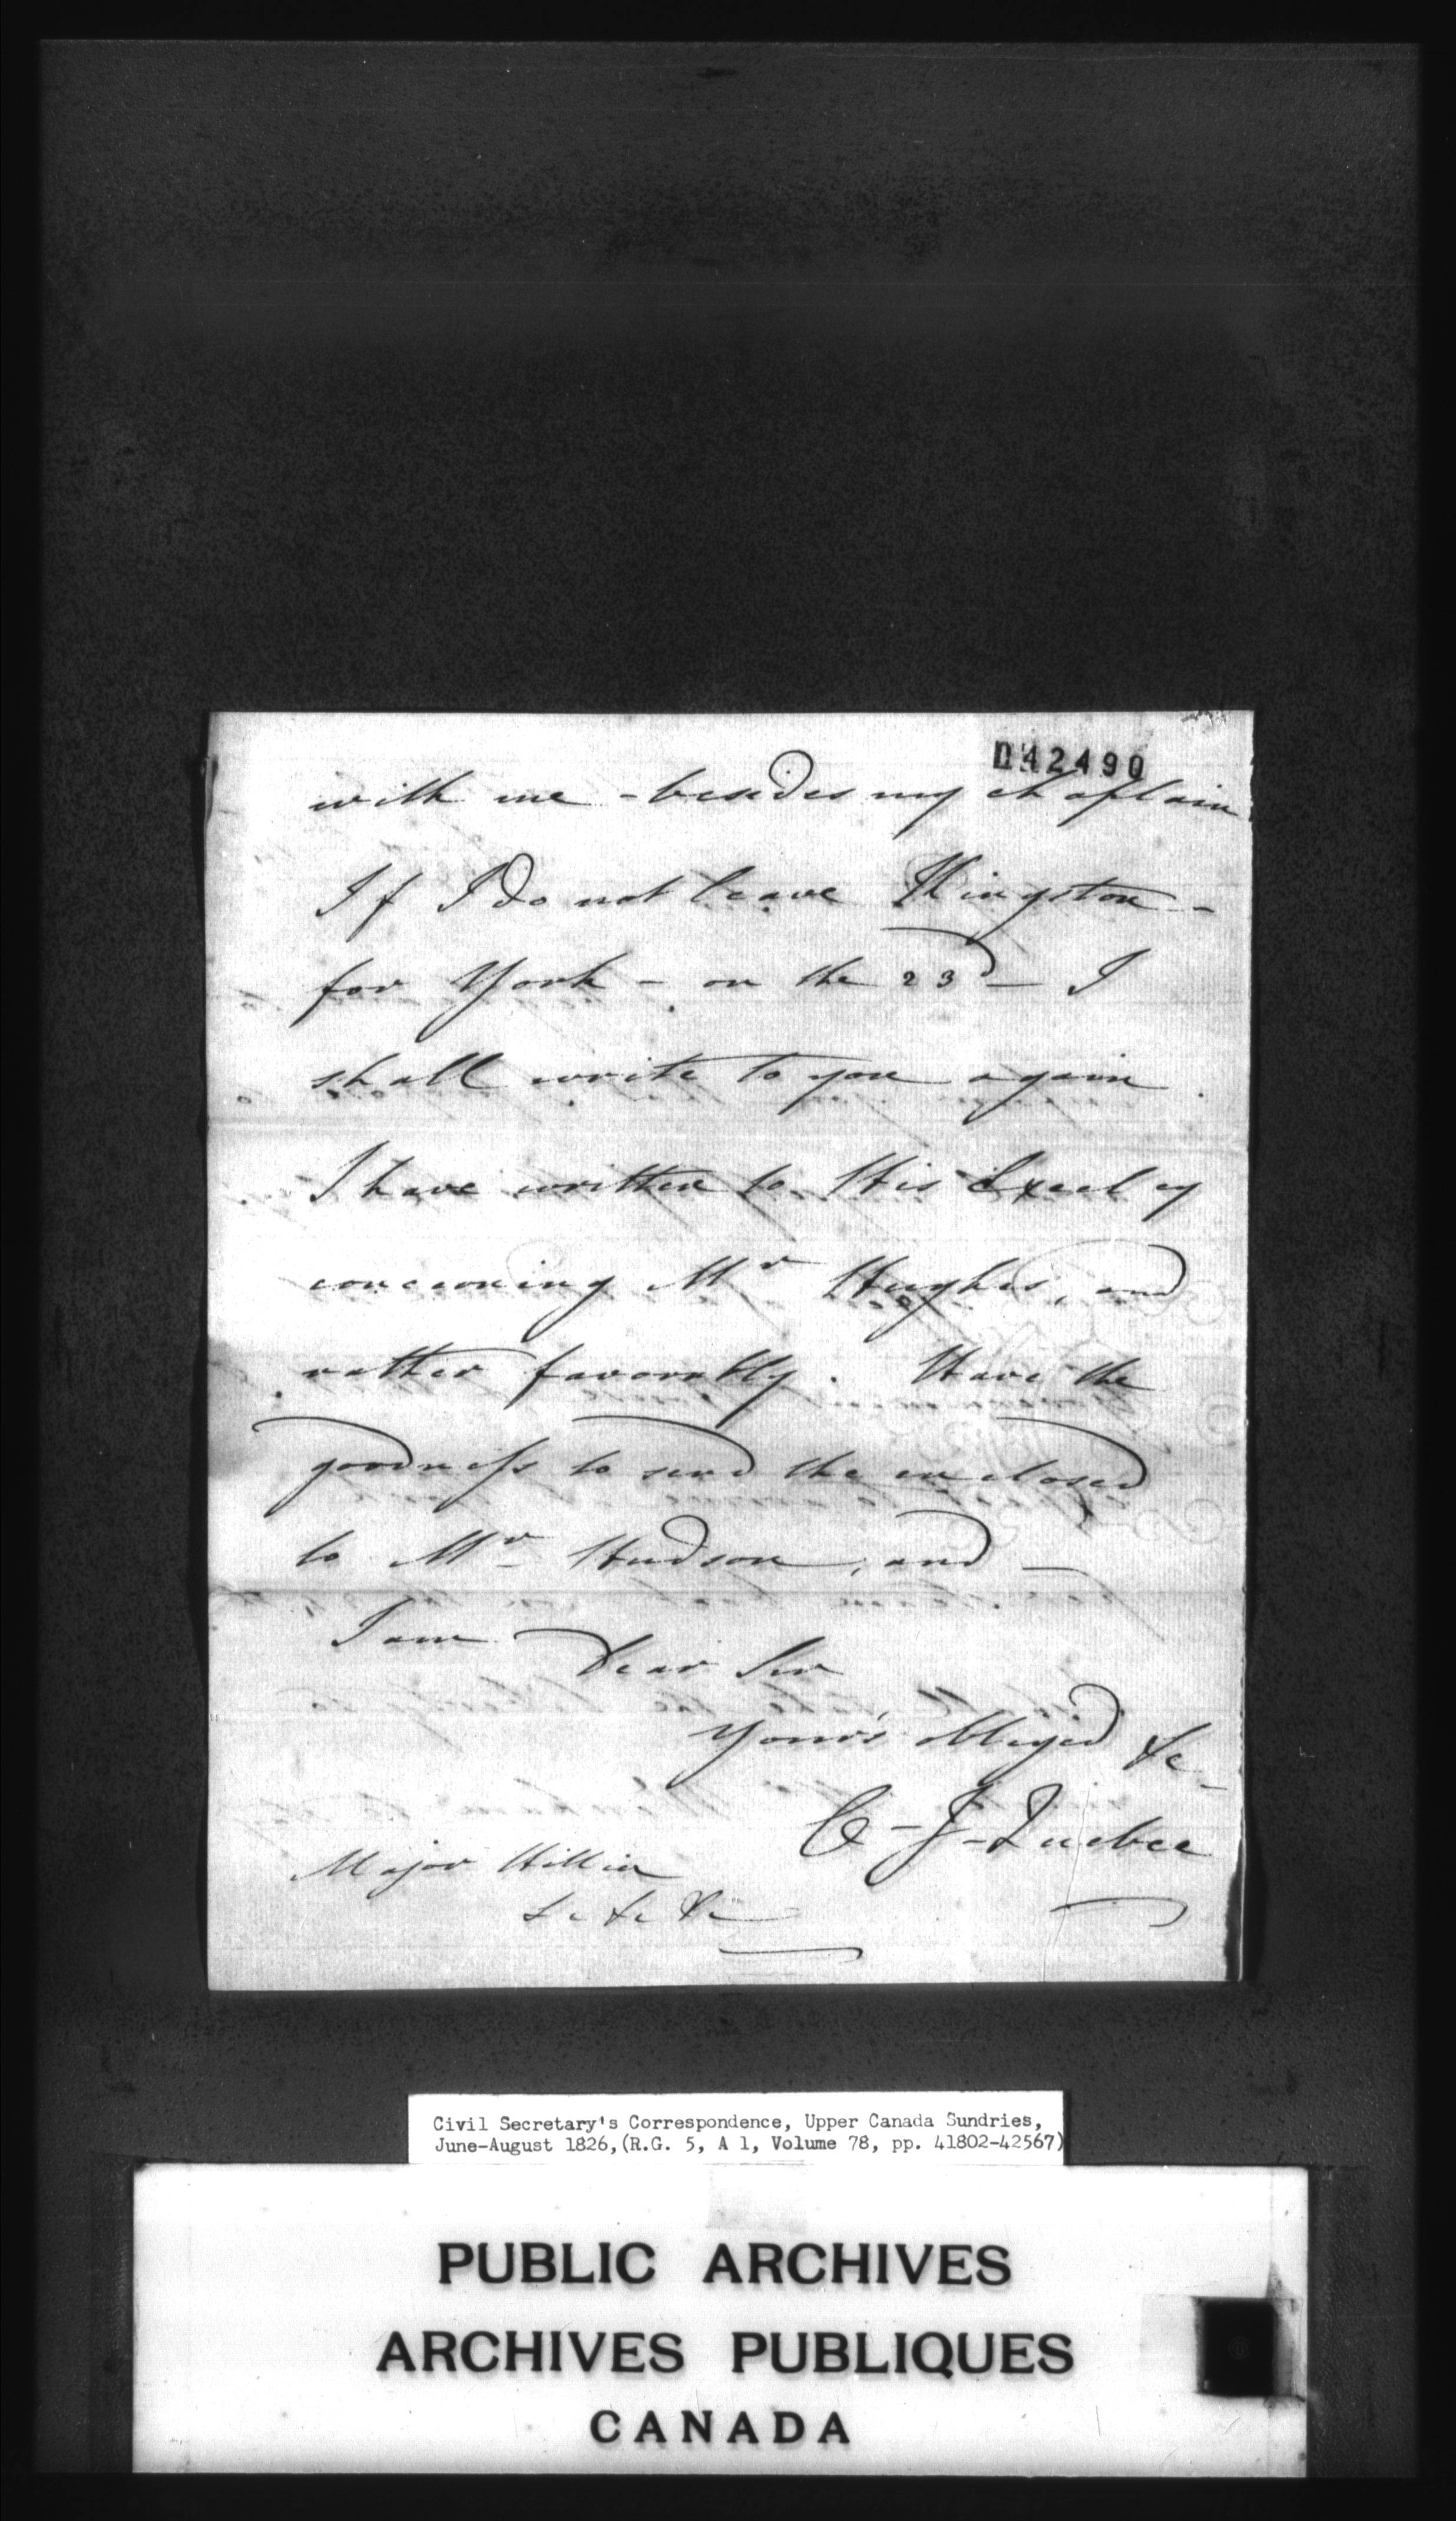 042490
with me - besides my chaplain
If I do not leave Kingston -
for York - on the 23d - I
shall write to you again.
I have written to His Excelcy
concerning Mr Hughes, and
rather favorably. Have the
goodness to send the enclosed
to Mr Hudson, and -
I am
Dear Sir
Your's obliged &c -
C - J - Quebec
Major Hillier
&c &c &c
Civil Secretary's Correspondence, Upper Canada Sundries,
June-August 1826, (R.G. 5, A 1, Volume 78, pp. 41802-42567)
PUBLIC ARCHIVES
ARCHIVES PUBLIQUES
CANADA